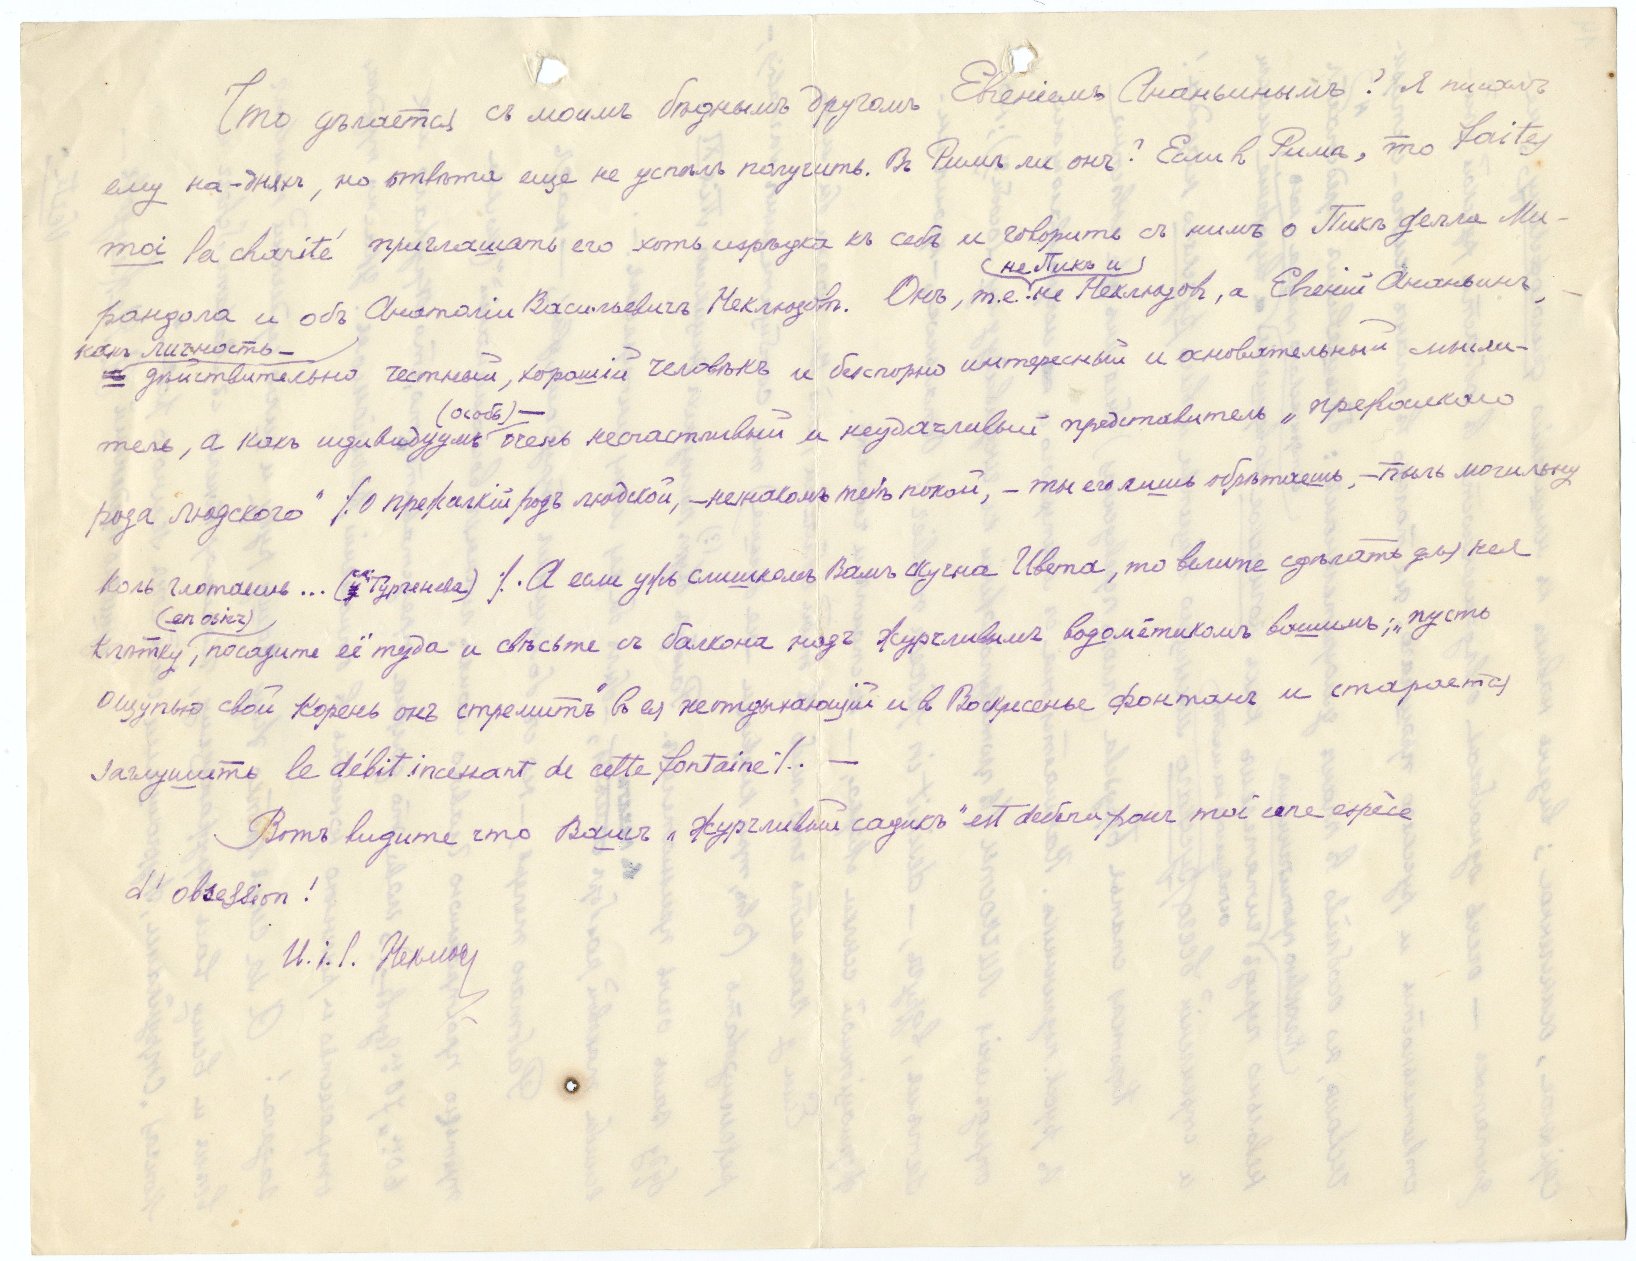 Что дѣлается съ моимъ бѣднымъ другомъ Евгеніемъ Ананьинымъ? Я писалъ
ему на-дняхъ, но отвѣта еще не успѣлъ получить. Въ Римѣ ли онъ? Если въ Римѣ, то faites
moi la charité приглашать его хоть изрѣдка къ себѣ и говорить съ нимъ о Пикѣ делла Ми-
рандола и объ Анатоліи Васильевичѣ Неклюдовѣ. Онъ, т.е. (не Пикъ и) не Неклюдовъ, а Евгеній Ананьинъ, —
какъ личность —
дѣйствительно честный, хорошій человѣкъ и безспорно интересный и основательный мысли-
(особь) —
тель, а какъ индивидуумъ очень несчастливый и неудачливый представитель „прежалкаго
рода людского" /: О прежалкій родъ людской, — незнакомъ тебѣ покой, — ты его лишь обрѣтаешь, — пыль могильну
коль глотаешь... (Тургенева) :/. А если ужъ слишкомъ Вамъ скучна Ивета, то велите сдѣлать для нея
клѣтку, посадите её туда и свѣсьте съ балкона надъ журчливымъ водомётикомъ вашимъ; „пусть
ощупью свой корень онъ стремитъ" въ ея неотдыхающій и въ Воскресенье фонтанъ и старается
заглушить le débit incessant de cette fontaine!.. —
Вотъ видите что Вашъ „журчливый садикъ" est devenu pour moi une espèce
d'obsession!
Неклюд